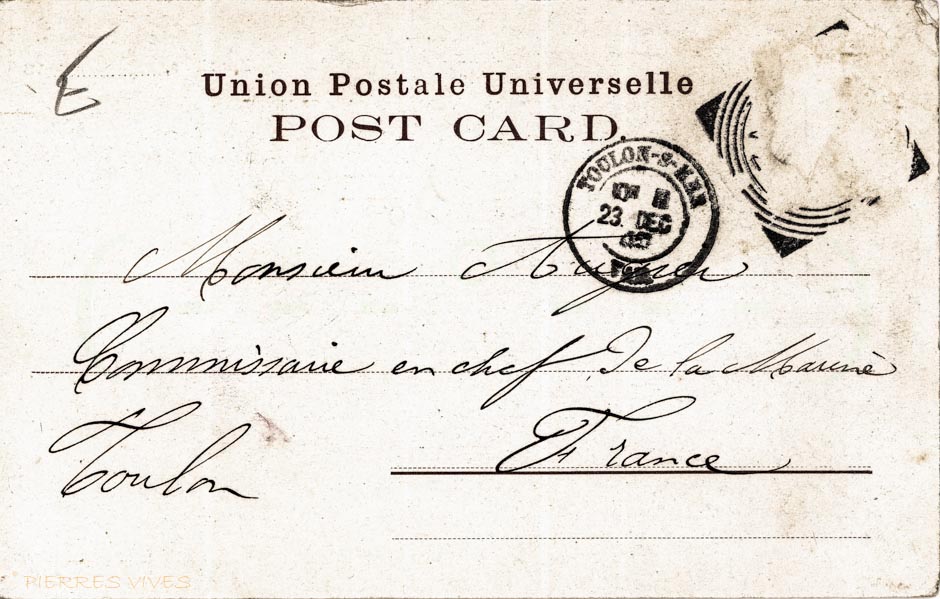 E
Union Postale Universelle
POST CARD.
TOULON-S-MER
23 DEC
Monsieur
Commissaire en chef De la Marine
Toulon
France
PIERRES VIVES